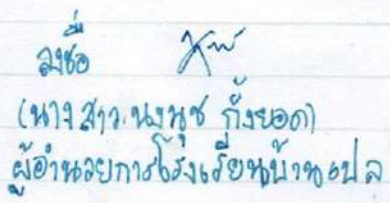 ลงชื่อ
(นางสาวนงนุช กิ่งยอด)
ผู้อำนวยการโรงเรียนบ้านเปล